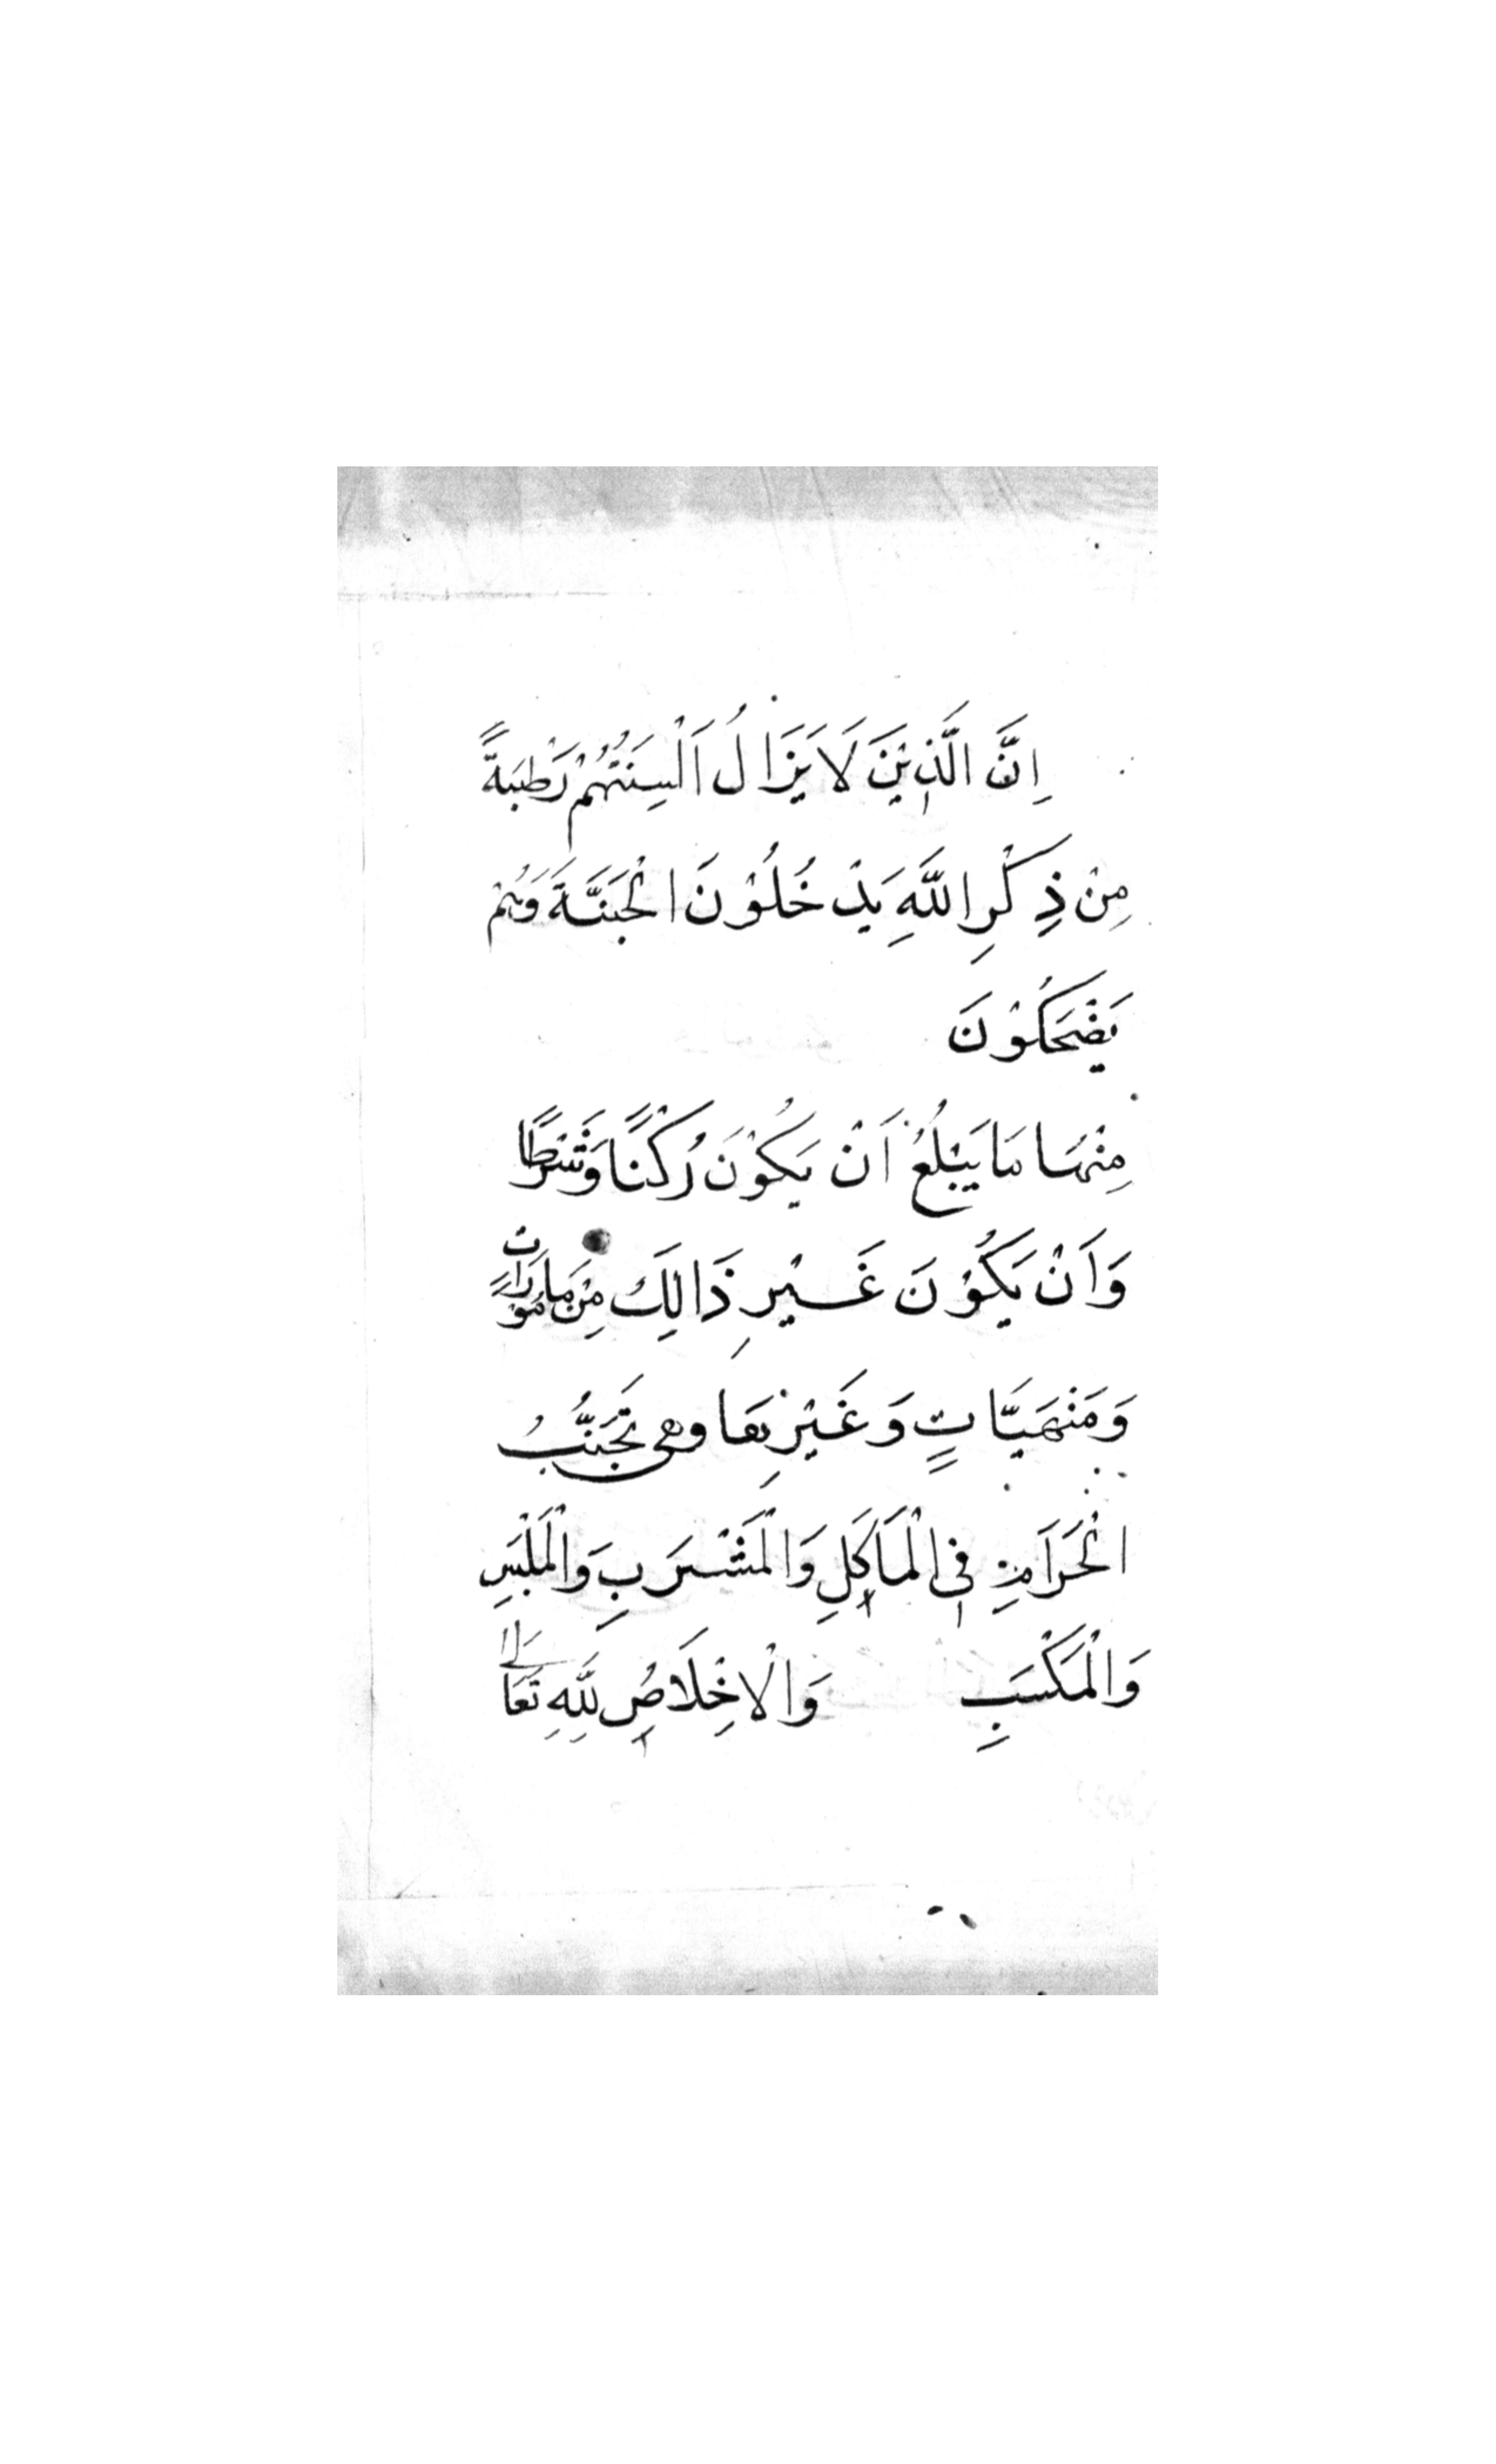 اِنَّ الَّذِيْنَ لَا يَزَالُ اَلْسِنَتُهُمْ رَطْبَةً
مِنْ ذِكْرِ اللّٰهِ يَدْخُلُوْنَ الْجَنَّةَ وَهُمْ
يَضْحَكُوْنَ
مِنْهَا مَا يَبْلُغُ اَنْ يَكُوْنَ رُكْنًا وَشَرْطًا
وَاَنْ يَكُوْنَ غَيْرِ ذَالِكَ مِنْ مَامُوْرَاتٍ
وَمَنْهَيَّاتٍ وَغَيْرِهَا وهى تَجَنَّبُ
الْحَرَامِ فِى الْمَاَكِلِ وَالْمَشْرَبِ وَالْمَلْبَسِ
وَالْمَكْسَبِ وَالْاِخْلَاصُ لِلّٰهِ تَعَالٰى